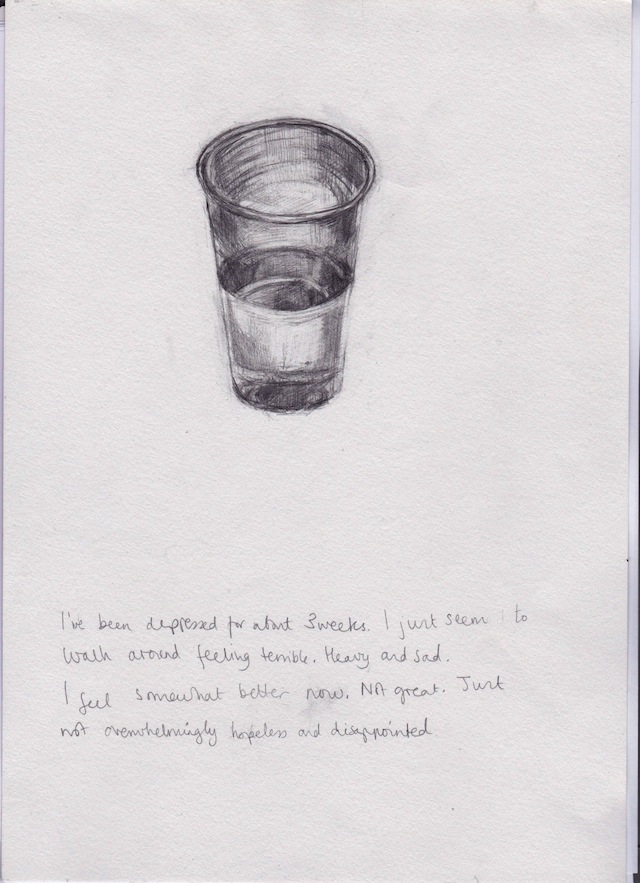 I've been depressed for about 3 weeks. I just seem to
walk around feeling terrible. Heavy and sad.
I feel somewhat better now. Not great. Just
not overwhelmingly hopeless and disappointed